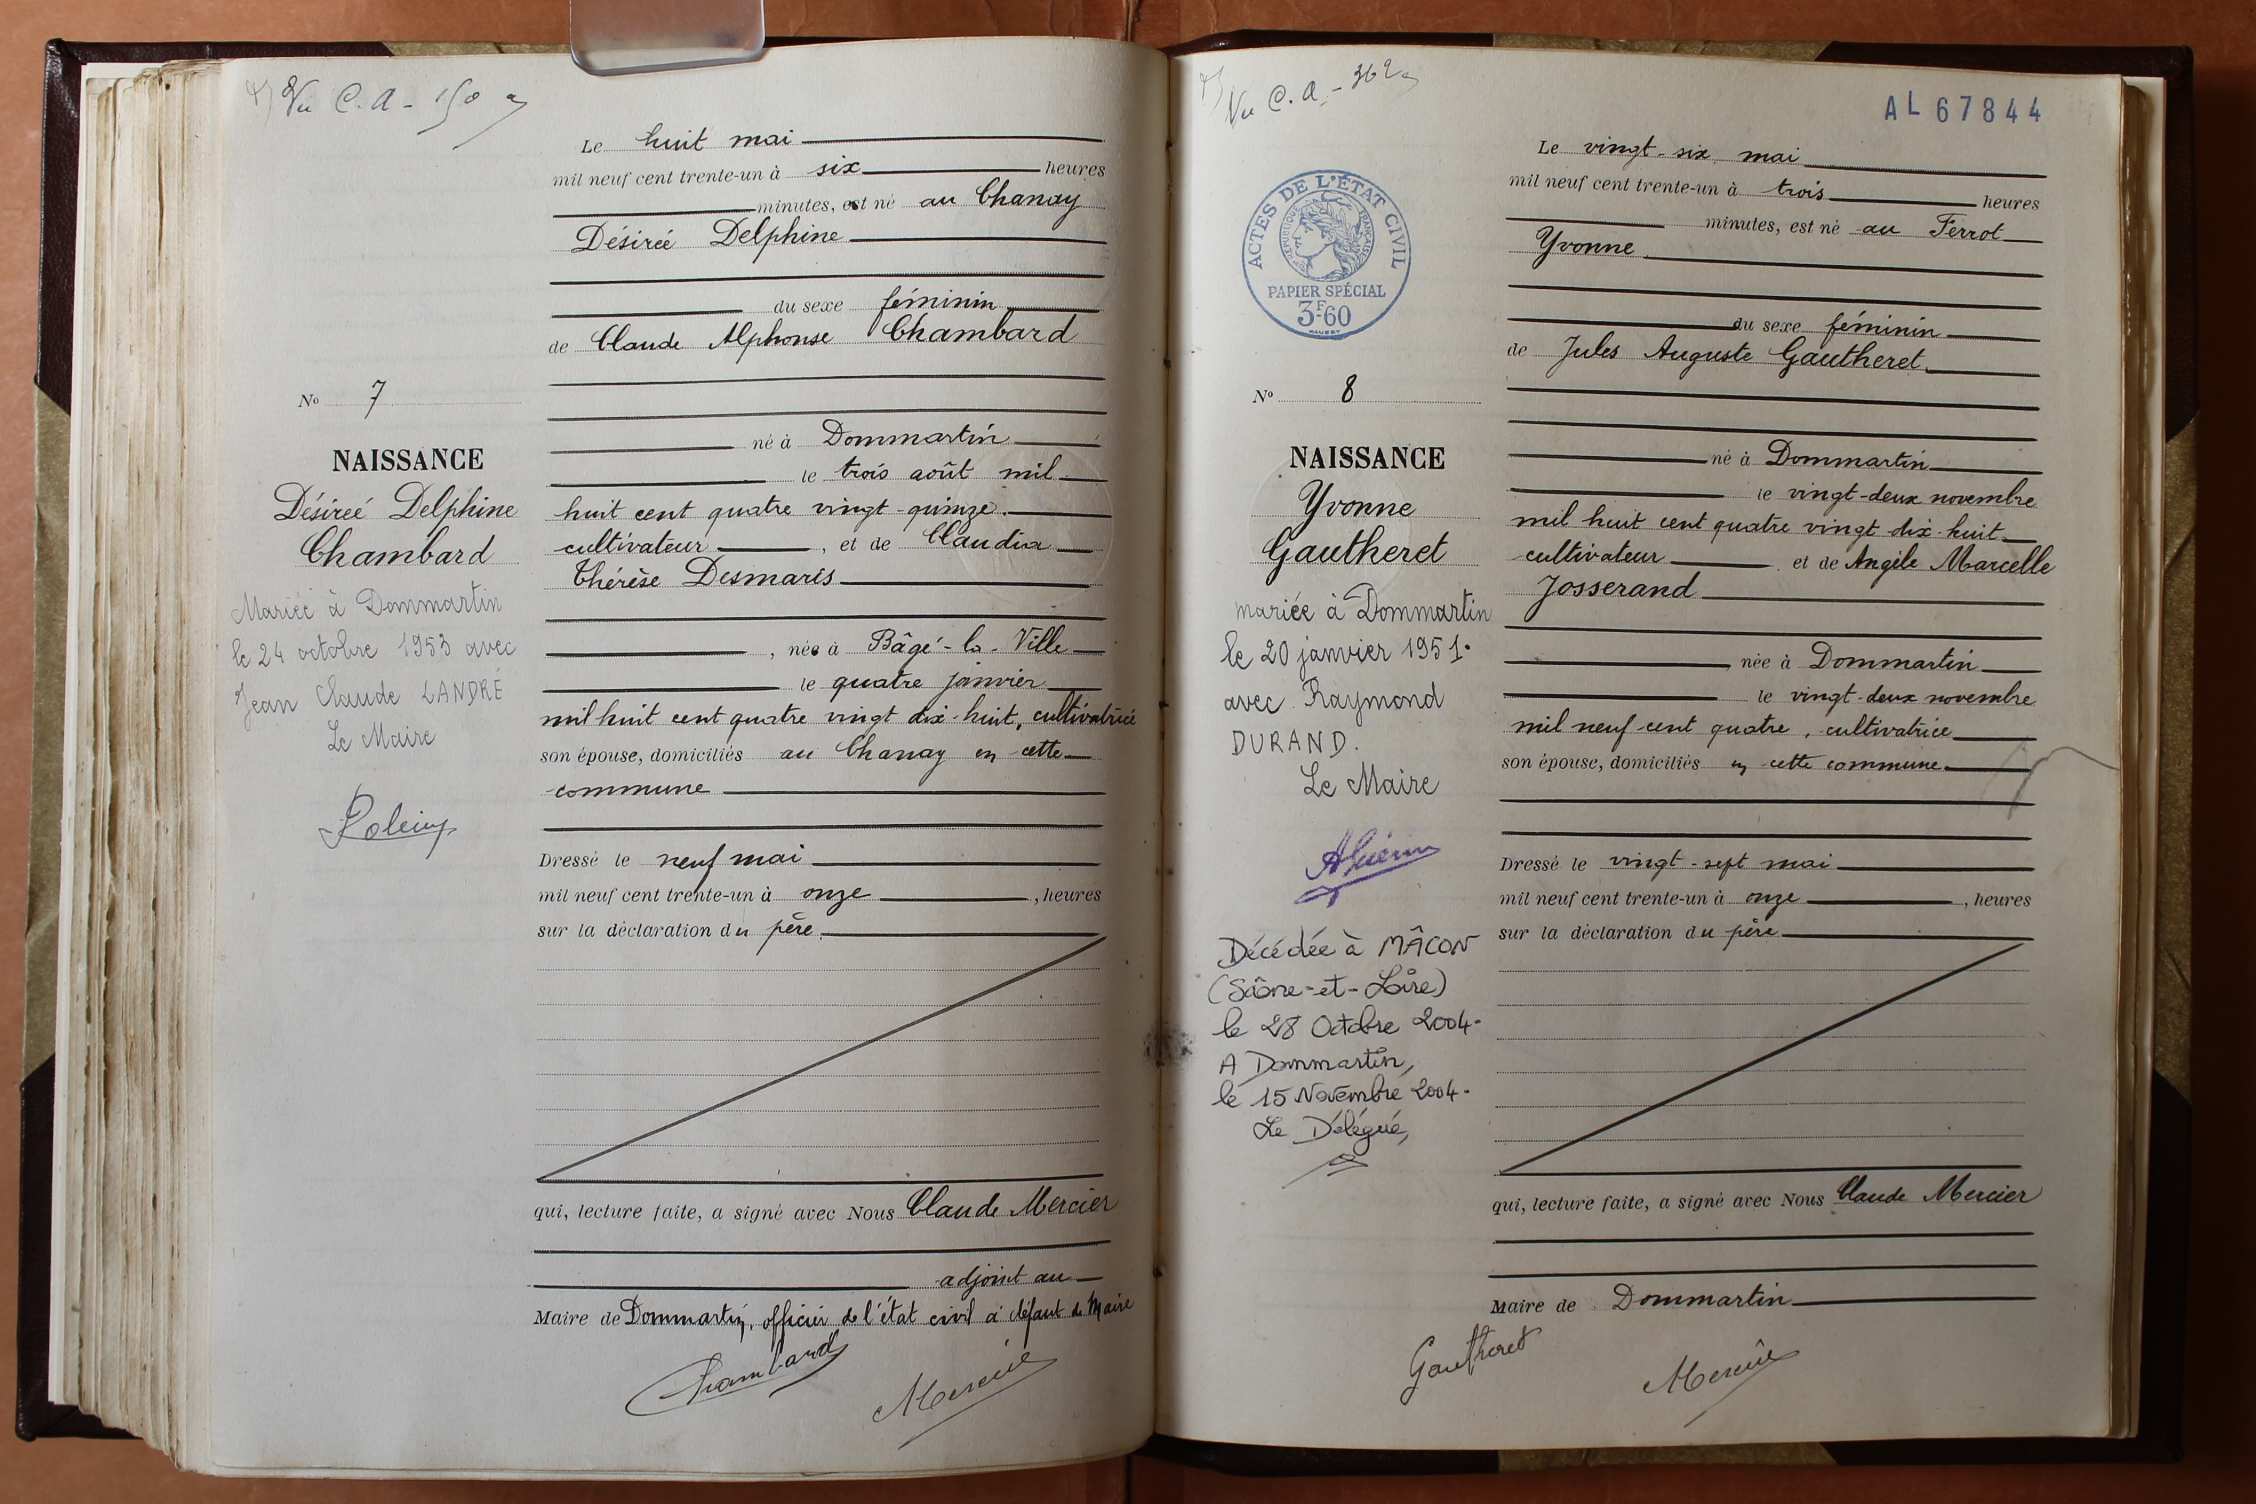 Vu C. A -
Le huit mai
mil neuf cent trente-un à six heures
minutes, est né au Chanay
Désireé Delphine
du sexe féminin
de Claude Alphonse Chambard
No 7
né à Dommartin
NAISSANCE
le trois août mil
Désireé Delphine
huit cent quatre vingt-quinze.
Chambard
cultivateur, et de Claudia
Thérèse Desmaris
Mariée à Dommartin
le 24 octobre 1953 avec
Jean Claude LANDRÉ
Le Maire
, née à Bâgé-la-Ville
le quatre janvier
mil huit cent quatre vingt dix-huit, cultivatrice
son épouse, domiciliés au Chanay en cette
commune
Dressé le neuf mai
mil neuf cent trente-un à onze, heures
sur la déclaration du père
qui, lecture faite, a signé avec Nous Claude Mercier
adjoint au
Maire de Dommartin, officier de l'état civil à défaut de Maire
Chambard
Mercier
Vu C. A. - 362
AL 67844
ACTES DE L'ÉTAT CIVIL
RÉPUBLIQUE FRANÇAISE
PAPIER SPÉCIAL
3F60
Le vingt-six mai
mil neuf cent trente-un à trois heures
minutes, est né au Ferrot
Yvonne
du sexe féminin
de Jules Auguste Gautheret
No 8
né à Dommartin
NAISSANCE
Yvonne
Gautheret
le vingt-deux novembre
mil huit cent quatre vingt dix-huit
cultivateur et de Angèle Marcelle
Josserand
mariée à Dommartin
le 20 janvier 1951.
avec Raymond
DURAND.
Le Maire
née à Dommartin
le vingt-deux novembre
mil neuf cent quatre, cultivatrice
son épouse, domiciliés en cette commune
Dressé le vingt-sept mai
mil neuf cent trente-un à onze, heures
sur la déclaration du père
Décédée à MÂCON
(Saône-et-Loire)
le 28 Octobre 2004-
A Dommartin,
le 15 Novembre 2004-
Le Délégué,
qui, lecture faite, a signé avec Nous Claude Mercier
Maire de Dommartin
Gautheret
Mercier